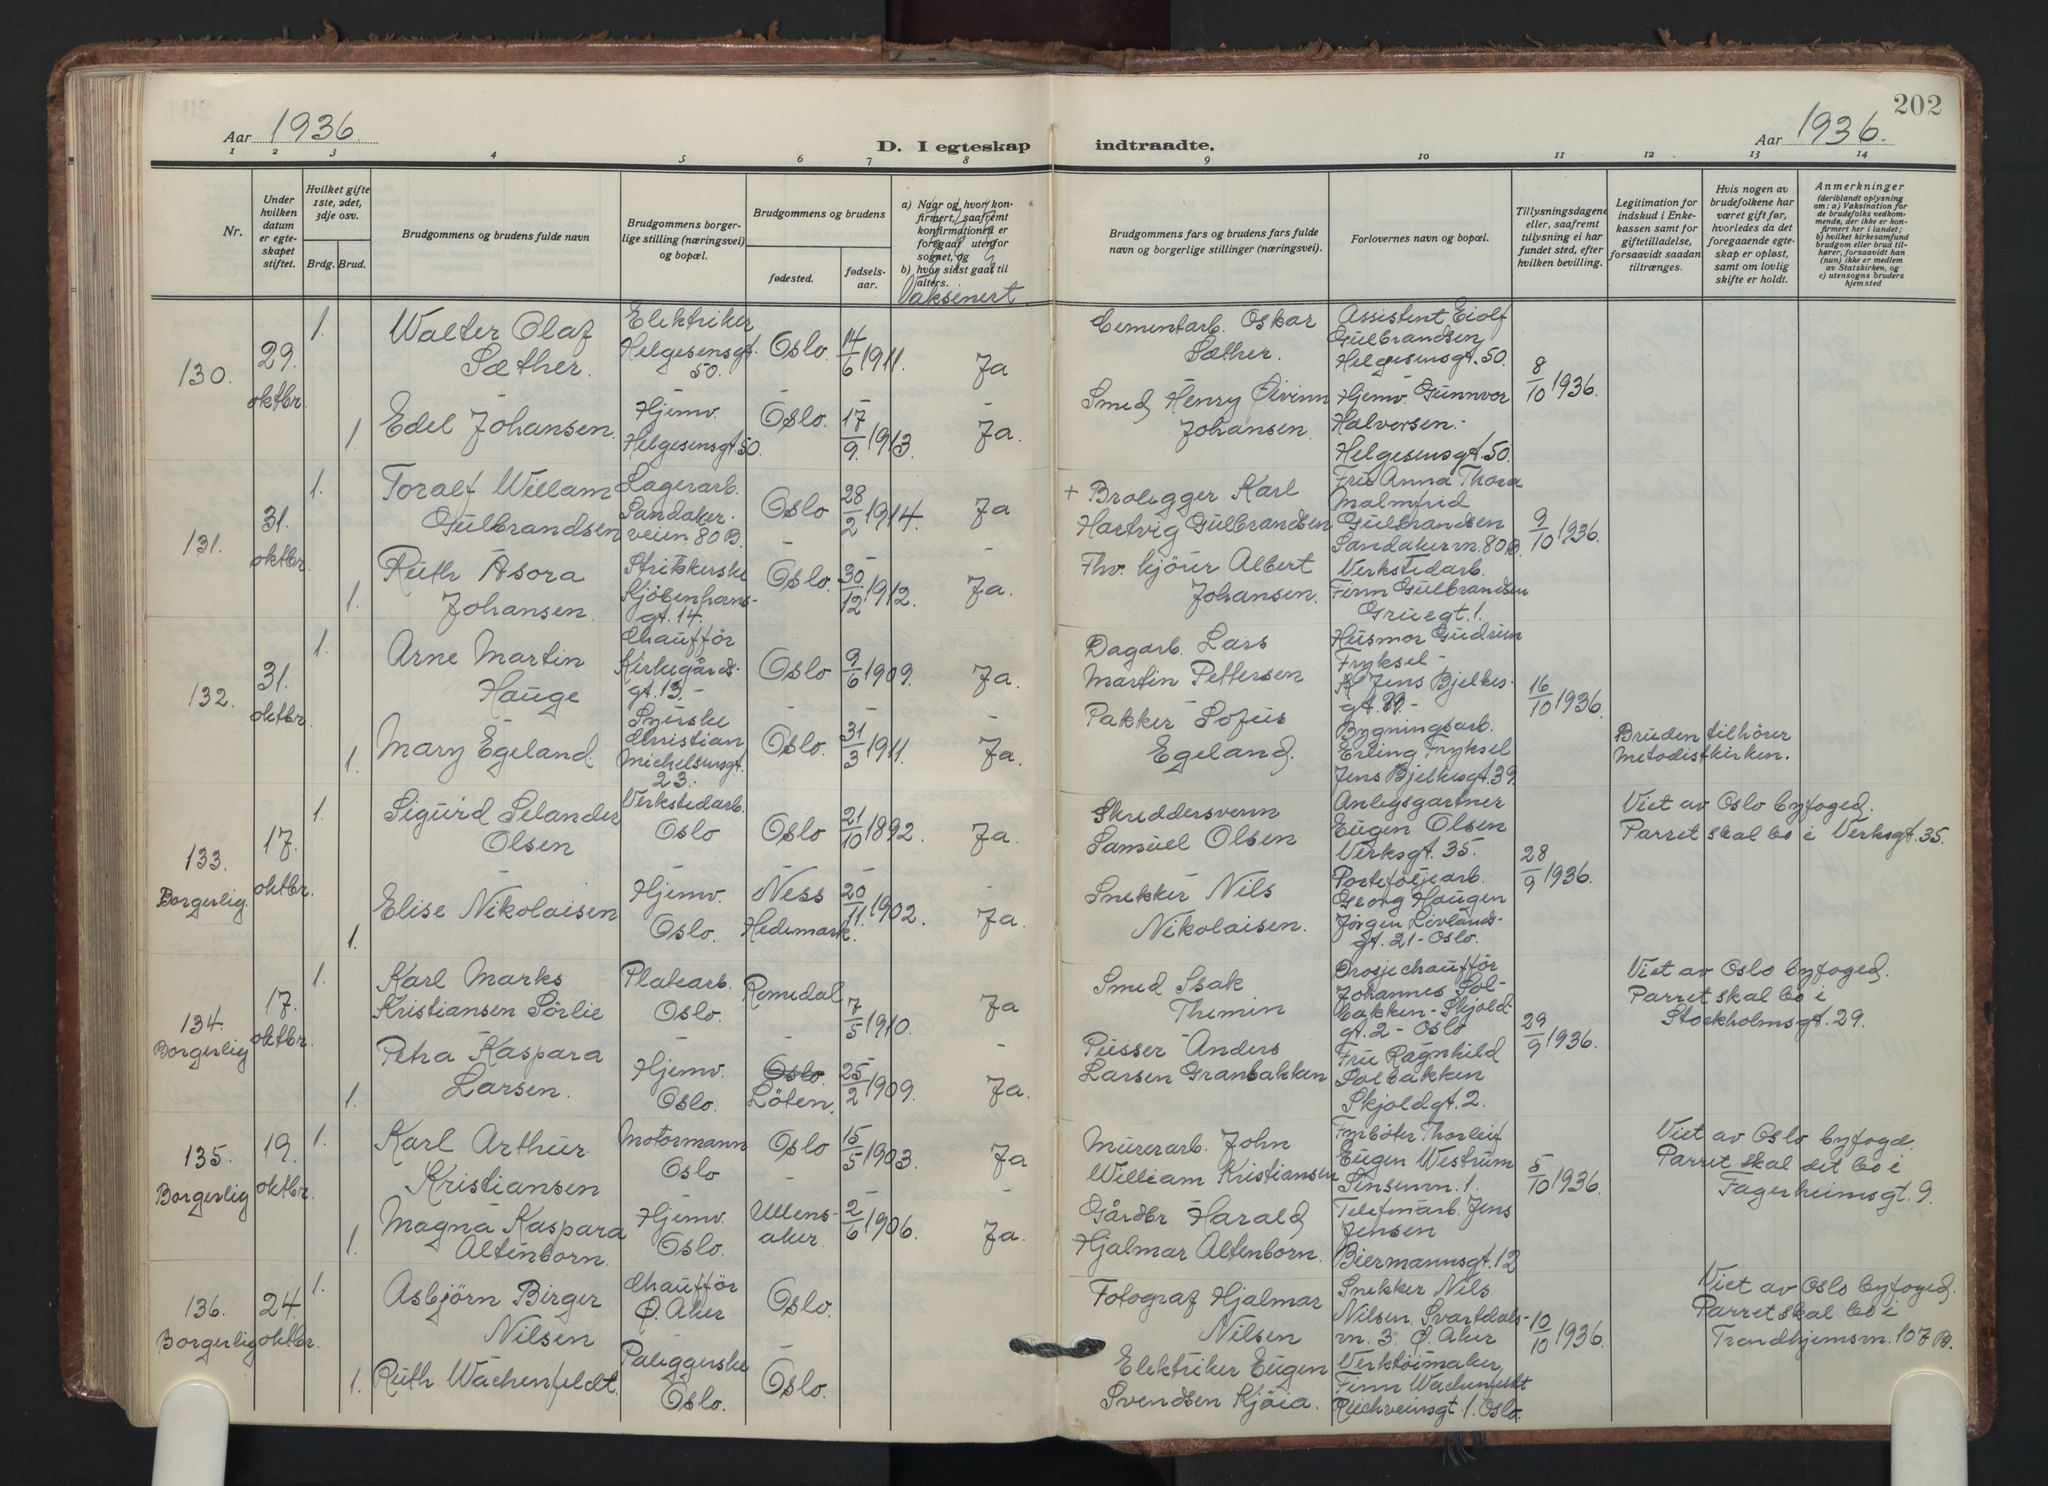 202
Aar 1936.
D. I egteskap indtraadte.
Aar 1936.
1 2 3 4 5 6 7 8 9 10 11 12 13 14
Nr.
Under hvilken datum er egteskapet stiftet.
Hvilket gifte 1ste, 2det, 3dje osv.
Brdg. Brud.
Brudgommens og brudens fulde navn
Brudgommens borgerlige stilling (næringsvei) og bopæl.
Brudgommens og brudens
fødested.
fødselsaar.
a) Naar og hvor konfirmert, saafremt konfirmationen er foregaat utenfor sognet, og
b) hvor sidst gaat til alters.
Vaksinert
Brudgommens fars og brudens fars fulde navn og borgerlige stillinger (næringsvei).
Forlovernes navn og bopæl.
Tillysningsdagene eller, saafremt tillysning ei har fundet sted, efter hvilken bevilling.
Legitimation for indskud i Enkekassen samt for giftetilladelse, forsaavidt saadan tiltrænges.
Hvis nogen av brudefolkene har været gift før, hvorledes da det foregaaende egteskap er opløst, samt om lovlig skifte er holdt.
Anmerkninger
(deriblandt oplysning om: a) Vaksination for de brudefolks vedkommende, der ikke er konfirmert her i landet; b) hvilket kirkesamfund brudgom eller brud tilhører, forsaavidt han (hun) ikke er medlem av Statskirken, og c) utensogns bruders hjemsted
130.
29. oktbr.
1.
Walter Olaf
Sæther.
Elektriker
Helgesensgt.
50.
Oslo.
14/6 1911.
Ja
Cementarb. Oskar
Sæther.
Assistent Eiolf
Gulbrandsen
Helgesensgt. 50.
8/10 1936.
1.
Edel Johansen.
Hjemv.
Helgesensgt. 50.
Oslo.
17/9 1913.
Ja.
Smed Henry Øivinn
Johansen.
Hjemv. Gunnvor
Halvorsen.
Helgesensgt. 50.
131.
31. oktbr.
1.
Toralf Willam
Gulbrandsen
Lagerarb.
Sandaker-
veien 80 B.
Oslo
28/2 1914.
Ja
+ Brolegger Karl
Hartvig Gulbrandsen
Frue Anna Thora
Malmfrid
Gulbrandsen
Sandakervn. 80 B.
9/10 1936.
1.
Ruth Asora
Johansen.
Strikkerske
Kjöbenhavns-
gt. 14.
Oslo.
30/12 1912.
Ja.
Fhv. kjörer Albert
Johansen.
Verkstedarb.
Finn Gulbrandsen
Gruegt. 1.
132.
31. oktbr.
1.
Arne Martin
Hauge
Chaufför
Kirkegårds-
gt. 13.
Oslo
9/6 1909.
Ja.
Dagarb. Lars
Martin Pettersen
Husmor Gudrun
Fryksel
Jens Bjelkes-
gt. 39.
16/10 1936.
1.
Mary Egeland.
Syerske
Christian
Michelsensgt.
23.
Oslo.
31/3 1911.
Ja.
Pakker Sofus
Egeland.
Bygningsarb.
Erling Fryksel
Jens Bjelkesgt. 39.
Bruden tilhörer
Metodistkirken.
133.
Borgerlig.
17. oktbr.
1.
Sigurd Selander
Olsen
Verkstedarb.
Oslo
Oslo
21/10 1892.
Ja.
Skreddersvenn
Samuel Olsen
Anlegsgartner
Eugen Olsen
Verksgt. 35.
28/9 1936.
Viet av Oslo byfoged.
Parret skal bo i Verksgt. 35.
1.
Elise Nikolaisen
Hjemv.
Oslo.
Ness
Hedemark.
20/11. 1902.
Ja.
Snekker Nils
Nikolaisen.
Porteføljearb.
Georg Haugen
Jørgen Lövlands-
gt. 21 - Oslo.
134.
Borgerlig
17. oktbr.
1.
Karl Marks
Kristiansen Sörlie
Platearb.
Oslo.
Romedal
7/5 1910.
Ja
Smed Isak
Themin
Drosjechaufför
Johannes Sol-
bakken - Skjold-
gt. 2 - Oslo
29/9 1936.
Viet av Oslo byfoged.
Parret skal bo i
Stockholmsgt. 29.
1.
Petra Kaspara
Larsen.
Hjemv.
Oslo.
Oslo.
Löten.
25/2 1909.
Ja.
Pusser Anders
Larsen Granbakken
Frue Ragnhild
Solbakken
Skjoldgt. 2.
135.
Borgerlig
19. oktbr.
1.
Karl Arthur
Kristiansen
Motormann
Oslo
Oslo
15/5 1903.
Ja
Murerarb. John
William Kristiansen
Fyrböter Thorleif
Eugen Westrum
Sinsenvn. 1.
5/10 1936.
Viet av Oslo byfogd.
Parret skal det bo i
Fagerheimsgt. 9.
1.
Magna Kaspara
Altenborn.
Hjemv.
Oslo.
Ullens-
aker.
2/6 1906.
Ja.
Gårdbr Harald
Hjalmar Altenborn.
Telefonarb. Jens
Jensen
Biermannsgt. 12
136.
Borgerlig
24. oktbr.
1.
Asbjörn Birger
Nilsen
Chaufför
Ø. Aker
Oslo.
Fotograf Hjalmar
Nilsen
Snekker Nils
Nilsen Svartdals-
vn. 3. Ø. Aker
10/10 1936.
Viet av Oslo byfoged.
Parret skal bo i
Trondhjemsvn. 107 B.
1.
Ruth Wachenfeldt.
Påleggerske
Oslo.
Oslo.
Elektriker Eugen
Svendsen Kjöia.
Verktöimaker
Finn Wachenfeldt
Reichweinsgt. 1. Oslo.